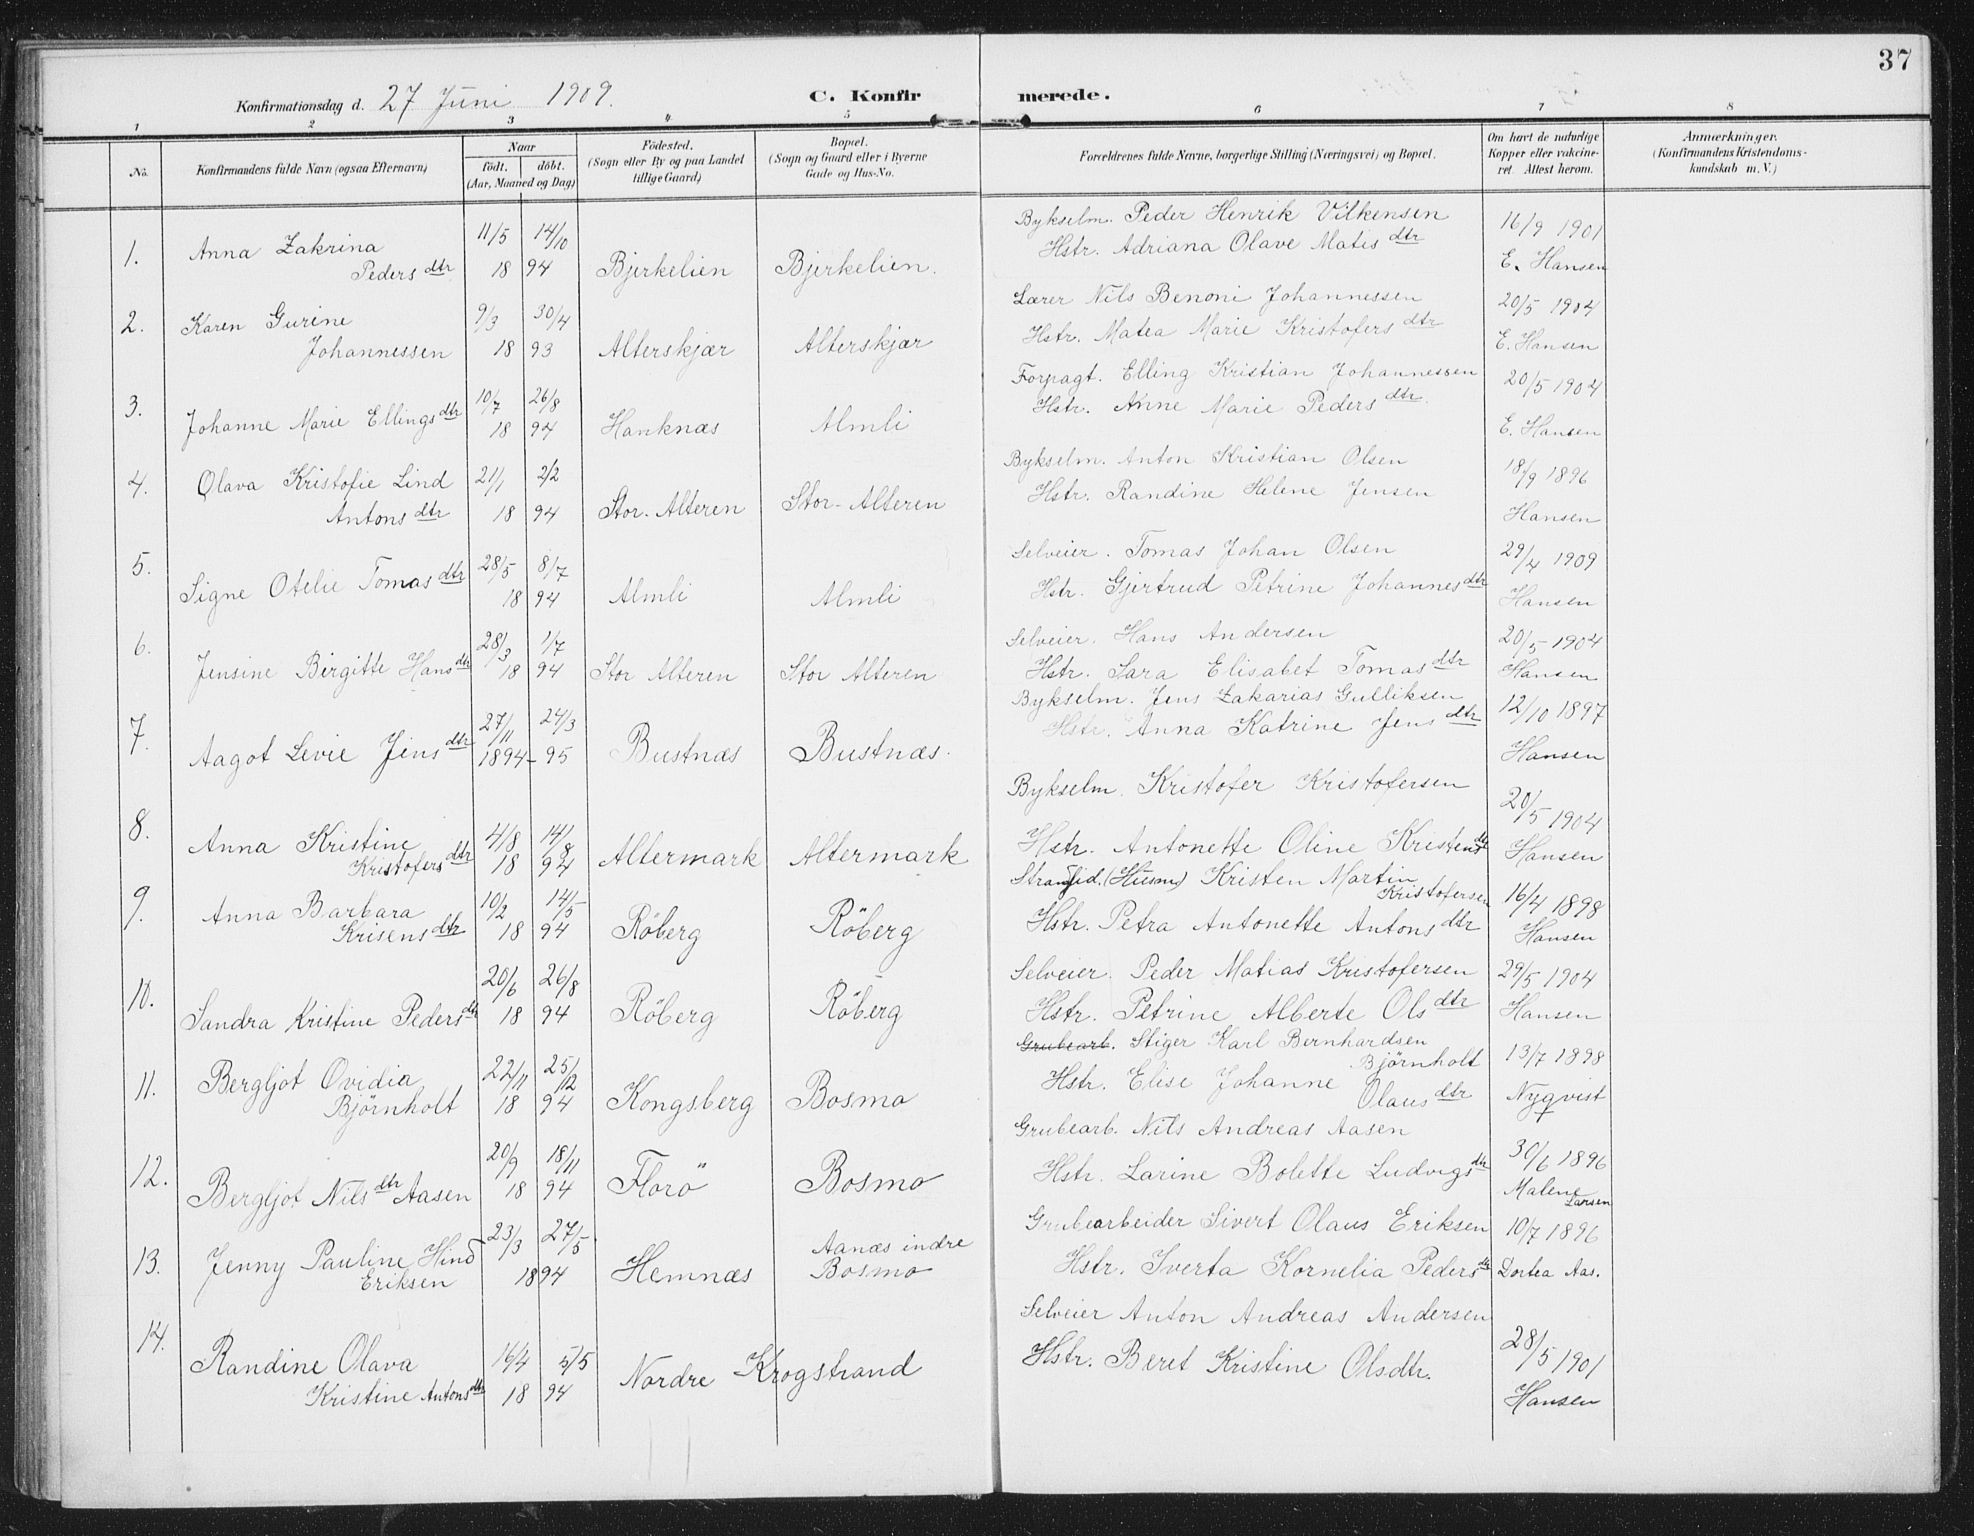 37
Konfirmationsdag d. 27 Juni 1909. C. Konfirmerede.
1 2 3 4 5 6 7 8
No. Konfirmandens fulde Navn (ogsaa Efternavn) Naar födt. döbt. (Aar, Maaned og Dag) Födested. (Sogn eller By og paa Landet tillige Gaard) Bopæl. (Sogn og Gaard eller i Byerne Gade og Hus-No. Forældrenes fulde Navne, borgerlige Stilling (Næringsvei) og Bopæl. Om havt de naturlige Kopper eller vakcineret. Attest herom. Anmærkninger. (Konfirmandens Kristendomskundskab m. V.)
1. Anna Zakrina Pedersdtr 11/5 14/10 18 94 Bjerkelien Bjerkelien. Bykselm. Peder Henrik Vilkensen
Hstr. Adriana Olave Matisdtr 16/9 1901 E. Hansen
2. Karen Gurine Johannessen 9/3 30/4 18 93 Alterskjær Alterskjær Lærer Nils Benoni Johannessen
Hstr. Matea Marie Kristofersdtr 20/5 1904 E. Hansen
3. Johanne Marie Ellingsdtr 10/7 26/8 18 94 Hanknæs Almli Forpagt. Elling Kristian Johannessen
Hstr. Anne Marie Pedersdtr. 20/5 1904 E. Hansen
4. Olava Kristofie Lind Antonsdtr 21/1 2/2 18 94 Stor-Alteren Stor-Alteren Bykselm. Anton Kristian Olsen
Hstr. Randine Helene Jensen 18/9 1896 Hansen
5. Signe Otelie Tomasdtr 28/5 8/7 18 94 Almli Almli Selveier. Tomas Johan Olsen
Hstr. Gjertrud Petrine Johannesdtr 29/4 1909 Hansen
6. Jensine Birgitte Hansdtr 28/3 1/7 18 94 Stor Alteren Stor Alteren Selveier. Hans Andersen
Hstr. Sara Elisabet Tomasdtr 20/5 1904 Hansen
7. Aagot Levie Jensdtr 27/11 24/3 1894-95 Bustnæs Bustnæs. Bykselm. Jens Zakarias Gulliksen
Hstr. Anna Katrine Jensdtr 12/10 1897 Hansen
8. Anna Kristine Kristofersdtr 4/8 14/8 18 94 Altermark Altermark Bykselm. Kristofer Kristofersen
Hstr. Antonette Oline Kristensdtr 20/5 1904 Hansen
9. Anna Barbara Krisensdtr 10/2 14/5 18 94 Röberg Röberg Strandsid. (Husm) Kristen Martin Kristofersen
Hstr. Petra Antonette Antonsdtr 16/4 1898 Hansen
10. Sandra Kristine Pedersdtr 20/6 26/8 18 94 Röberg Röberg Selveier. Peder Matias Kristofersen
Hstr. Petrine Alberte Olsdtr 29/5 1904 Hansen
11. Bergljot Ovidia Björnholt 22/11 25/12 18 94 Kongsberg Bosmo Grubearb. Stiger Karl Bernhardsen Björnholt
Hstr. Elise Johanne Olausdtr 13/7 1898 Nyqvist
12. Bergljot Nilsdtr Aasen 20/9 18/11 18 94 Florö Bosmo Grubearb. Nils Andreas Aasen
Hstr. Larine Bolette Ludvigsdtr 30/6 1896 Malene Larsen
13. Jenny Pauline Hind Eriksen 23/3 27/5 1894 Hemnæs Aanæs indre Bosmo Grubearbeider Sivert Olaus Eriksen
Hstr. Iverta Kornelia Pedersdtr 10/7 1896 Dortea Aas.
14. Randine Olava Kristine Antonsdtr 16/4 5/5 18 94 Nordre Krogstrand Selveier Anton Andreas Andersen
Hstr. Beret Kristine Olsdtr. 28/5 1901 Hansen